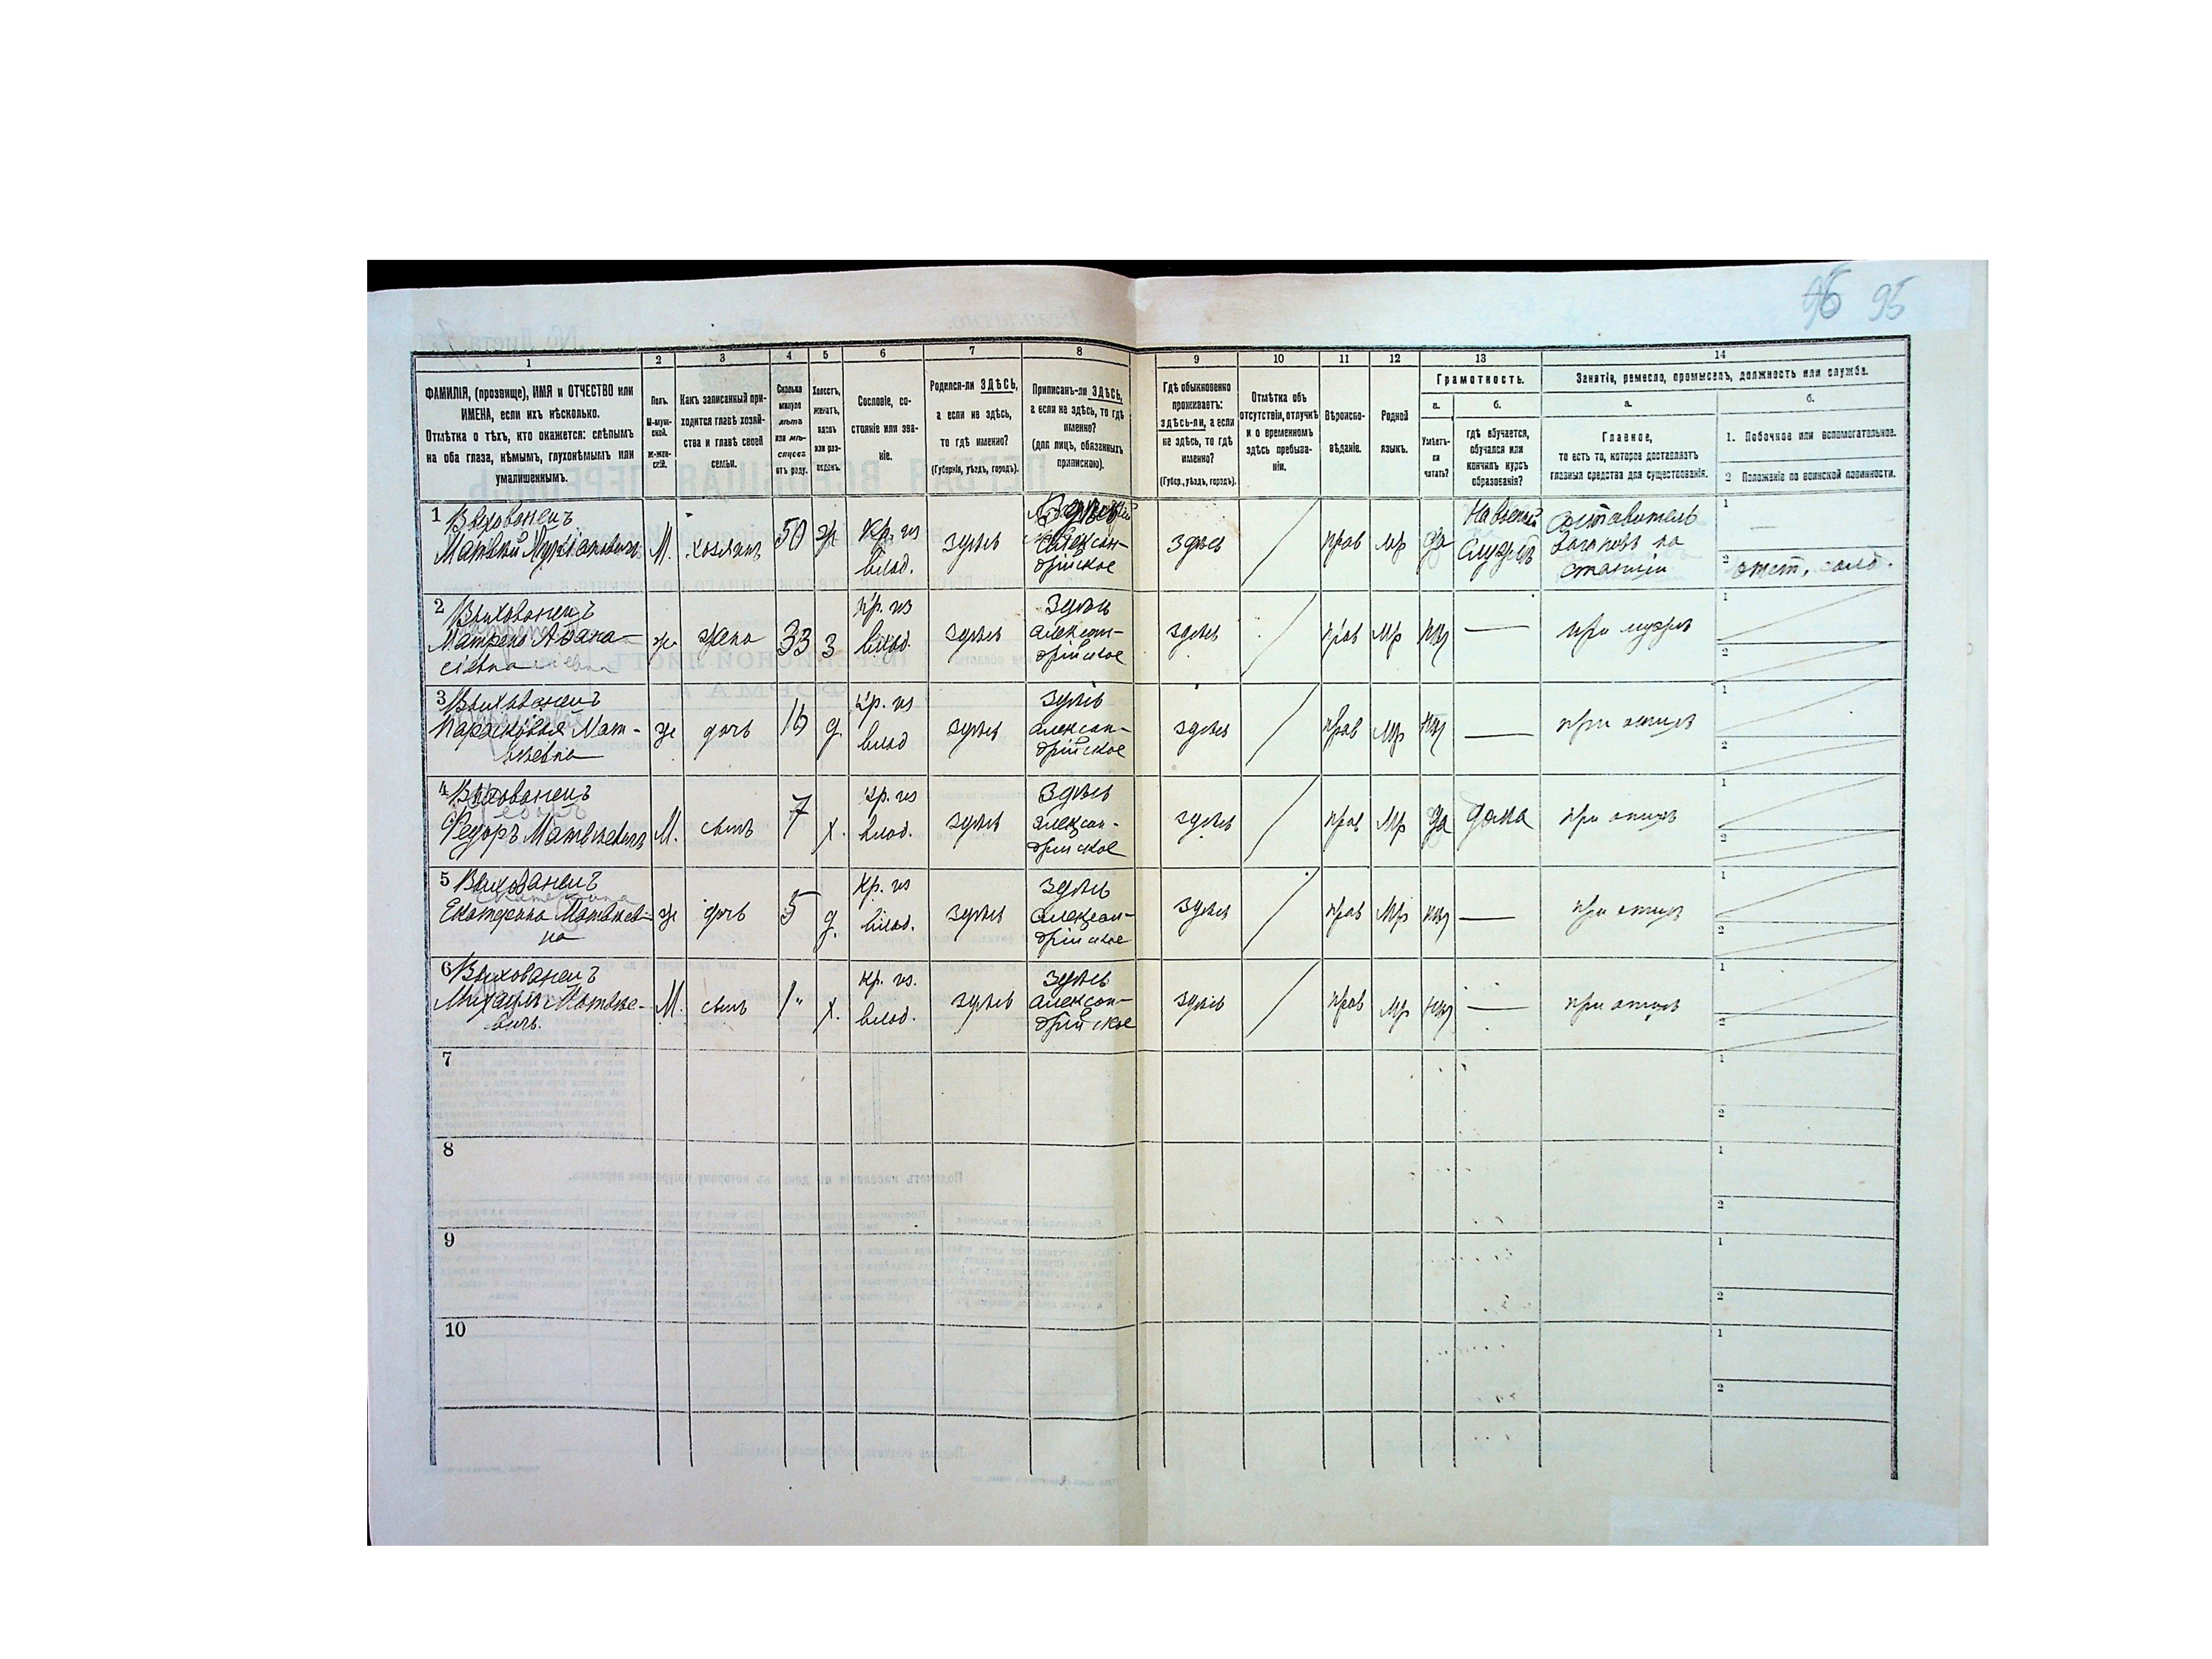 95 95
1 2 3 4 5 6 7 8 9 10 11 12 13 14
ФАМИЛІЯ, (прозвище), ИМЯ и ОТЧЕСТВО или
ИМЕНА, если ихъ нѣсколько.
Отмѣтка о тѣхъ, кто окажется: слѣпымъ
на оба глаза, нѣмымъ, глухонѣмымъ или
умалишеннымъ.
Полъ.
М-муж-
ской.
Ж-жен-
скій.
Какъ записанный при-
ходится главѣ хозяй-
ства и главѣ своей
семьи.
Сколько
минуло
лѣтъ
или мѣ-
сяцевъ
отъ роду.
Холостъ,
женатъ,
вдовъ
или раз-
веденъ.
Сословіе, со-
стояніе или зва-
ніе.
Родился-ли ЗДѢСЬ,
а если не здѣсь,
то гдѣ именно?
(Губернія, уѣздъ, городъ).
Приписанъ-ли ЗДѢСЬ,
а если не здѣсь, то гдѣ
именно?
(для лицъ, обязанныхъ
припискою).
Гдѣ обыкновенно
проживаетъ:
ЗДѢСЬ-ЛИ, а если
не здѣсь, то гдѣ
именно?
(Губер., уѣздъ, городъ).
Отмѣтка объ
отсутствіи, отлучкѣ
и о временномъ
здѣсь пребыва-
ніи.
Вѣроиспо-
вѣданіе.
Родной
языкъ.
Грамотность.
а. б.
Умѣетъ-
ли
читать?
гдѣ обучается,
обучался или
кончилъ курсъ
образованія?
Занятіе, ремесло, промыселъ, должность или служба.
а. б.
Главное,
то есть то, которое доставляетъ
главныя средства для существованія.
1. Побочное или вспомогательное.
2 Положеніе по воинской повинности.
1 Выхованецъ
Матвѣй
М. хозяинъ 50 ж Кр. из
влад.
здѣсь
Алексан-
дрійское
здѣсь
прав Мр да
На военной
службѣ
Составитель
вагоновъ на
станціи
1 —
2 отст. солд.
2 Выхованецъ
Матрена Аѳана-
сіевна
ж жена 33 З Кр. из
влад.
здѣсь
здѣсь
алексан-
дрійское
здѣсь
прав Мр нѣт — при мужѣ
1
2
3 Выхованецъ
Парасковія Мат-
вѣевна
ж дочь 16 д Кр. из
влад
здѣсь
здѣсь
алексан-
дрійское
здѣсь
прав Мр нѣт — при отцѣ
1
2
4 Выхованецъ
Федоръ Матвѣевичъ
М. сынъ 7 х. Кр. из
влад.
здѣсь
здѣсь
алексан-
дрійское
здѣсь
прав Мр да дома при отцѣ
1
2
5 Выхованецъ
Екатерина Матвѣев-
на
ж дочь 5 д. Кр. из
влад.
здѣсь
здѣсь
алексан-
дрійское
здѣсь
прав Мр нѣт — при отцѣ
1
2
6 Выхованецъ
Михаилъ Матвѣе-
вичъ.
М. сынъ 1" х. Кр. из.
влад.
здѣсь
здѣсь
алексан-
дрійское
здѣсь
прав Мр нѣт — при отцѣ
1
2
7 1
2
8 1
2
9 1
2
10 1
2